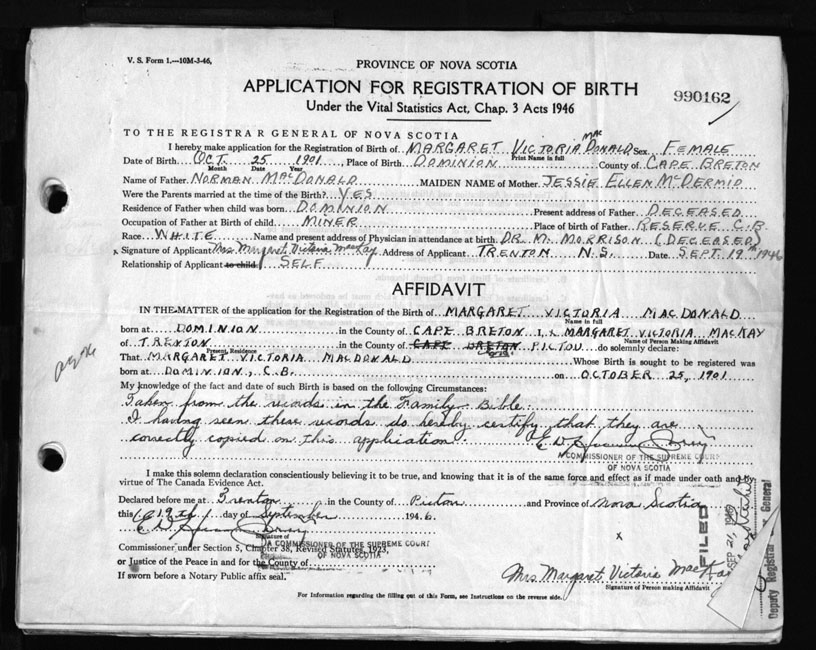 V. S. Form 1.—10M-3-46.
PROVINCE OF NOVA SCOTIA
APPLICATION FOR REGISTRATION OF BIRTH
990162
Under the Vital Statistics Act, Chap. 3 Acts 1946
TO THE REGISTRAR GENERAL OF NOVA SCOTIA
I hereby make application for the Registration of Birth of MARGARET VICTORIA MacDONALD Sex FEMALE
Print Name in full
Date of Birth OCT. 25 1901, Place of Birth DOMINION County of CAPE BRETON
Month Date Year
Name of Father NORMAN MacDONALD MAIDEN NAME of Mother JESSIE ELLEN McDERMID
Were the Parents married at the time of the Birth? YES
Residence of Father when child was born DOMINION Present address of Father DECEASED
Occupation of Father at Birth of child MINER Place of birth of Father RESERVE C.B.
Race WHITE Name and present address of Physician in attendance at birth DR. M. MORRISON (DECEASED)
x Signature of Applicant Mrs. Margaret Victoria MacKay Address of Applicant TRENTON N.S. Date SEPT. 19th 1946
Relationship of Applicant to child SELF
AFFIDAVIT
IN THE MATTER of the application for the Registration of the Birth of MARGARET VICTORIA MACDONALD
Name in full
born at DOMINION in the County of CAPE BRETON I, x MARGARET VICTORIA MACKAY
Name of Person Making Affidavit
of TRENTON in the County of CAPE BRETON PICTOU do solemnly declare:
Present Residence
That MARGARET VICTORIA MACDONALD Whose Birth is sought to be registered was
born at DOMINION, C.B. on OCTOBER 25, 1901
My knowledge of the fact and date of such Birth is based on the following Circumstances:
Taken from the records in the Family Bible.
I having seen these records do hereby certify that they are
correctly copied on this application.
A COMMISSIONER OF THE SUPREME COURT
OF NOVA SCOTIA
I make this solemn declaration conscientiously believing it to be true, and knowing that it is of the same force and effect as if made under oath and by
virtue of The Canada Evidence Act.
Declared before me at Trenton in the County of Pictou and Province of Nova Scotia
this 19th day of September 1946
Signature of
A COMMISSIONER OF THE SUPREME COURT
OF NOVA SCOTIA
Commissioner under Section 5, Chapter 38, Revised Statutes, 1923,
or Justice of the Peace in and for the County of
x
If sworn before a Notary Public affix seal.
Mrs Margaret Victoria MacKay
Signature of Person making Affidavit
For Information regarding the filling out of this Form, see Instructions on the reverse side.
FILED
SEP 21 1946
Deputy Registrar General